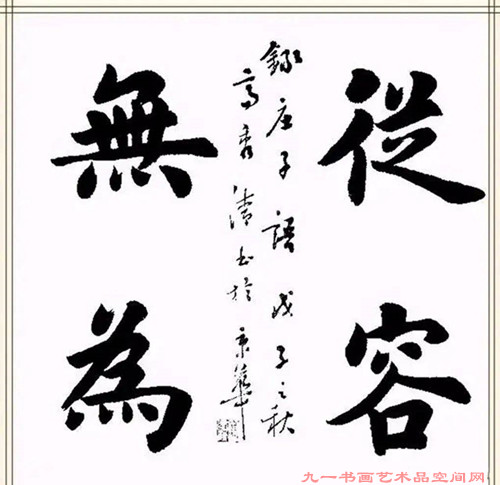 從容
錄庄子語戊子之秋
高秀清书於京華
無為
九一书画艺术品空间网